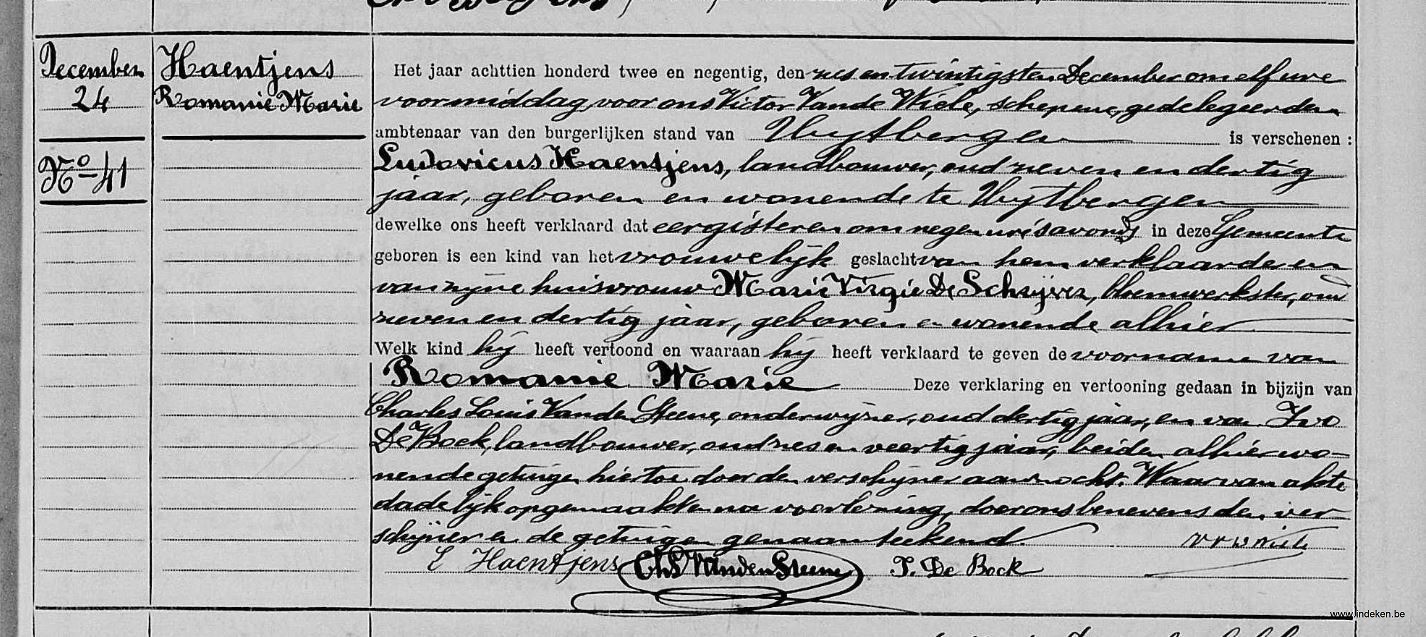 December
24
Haentjens
Romanie Marie
No 41
Het jaar achttien honderd twee en negentig, den zes en twintigsten December om elf ure
voormiddag, voor ons Victor Vande Wiele, schepene, gedelegeerden
ambtenaar van den burgerlijken stand van Uytbergen is verschenen :
Ludovicus Haentjens, landbouwer, oud zeven en dertig
jaar, geboren en wonende te Uytbergen
dewelke ons heeft verklaard dat eergisteren om negen ure 's avonds in deze Gemeente
geboren is een kind van het vrouwelijk geslacht van hem verklaarde en
van zijne huisvrouw Marie Virgie De Schrijver, bloemwerkster, oud
zeven en dertig jaar, geboren en wonende alhier
Welk kind hij heeft vertoond en waaraan hij heeft verklaard te geven de voorname van
Romanie Marie Deze verklaring en vertooning gedaan in bijzijn van
Charles Louis Vanden Steene, onderwijzer, oud dertig jaar, en van Ivo
De Bock, landbouwer, oud zes en veertig jaar, beiden alhier wo-
nende getuigen hiertoe door den verschijner aanzocht. Waarvan akte
dadelijk opgemaakt en na voorlezing, door ons benevens den ver
schijner en de getuigen genaamteekend.
L Haentjens Chs Vanden Steene I. De Bock
www.indeken.be